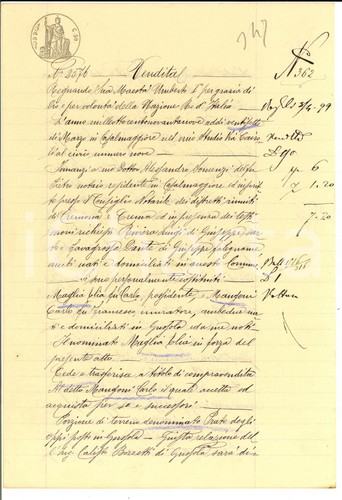 147
N° 362
N° 2576 Vendita
Regnando Sua Maestà Umberto I° per grazia di
Dio e per volontà della Nazione Re d'Italia
L'anno milleottocentonovantanove addì ventisette
di Marzo in Casalmaggiore nel mio studio Via Cairoli
al civico numero nove
Innanzi a me Dottor Alessandro Somenzi del fu
Pietro notaio residente in Casalmaggiore ed iscritto
presso il Consiglio Notarile dei distretti riuniti
di Cremona e Crema ed in presenza dei testi
moni richiesti Riviera Luigi di Giuseppe
e Lavagrossa Dante di Giuseppe falegname
ambi nati e domiciliati in questo Comune
sono personalmente costituiti
Maglia Elia fu Carlo, possidente, e Mangoni
Carlo fu Francesco, muratore, ambedue na
ti e domiciliati in Gussola da me noti
Il nominato Maglia Elia in forza del
presente atto
Cede e trasferisce a titolo di compravendita
Al detto Mangoni Carlo il quale accetta ed
acquista per se e successori:
Porzione di terreno denominato Prato degli
oppi posto in Gussola — Giusta relazione del
Ing. Calisto Borsetti di Gussola sarà di
6
1.20
7.20